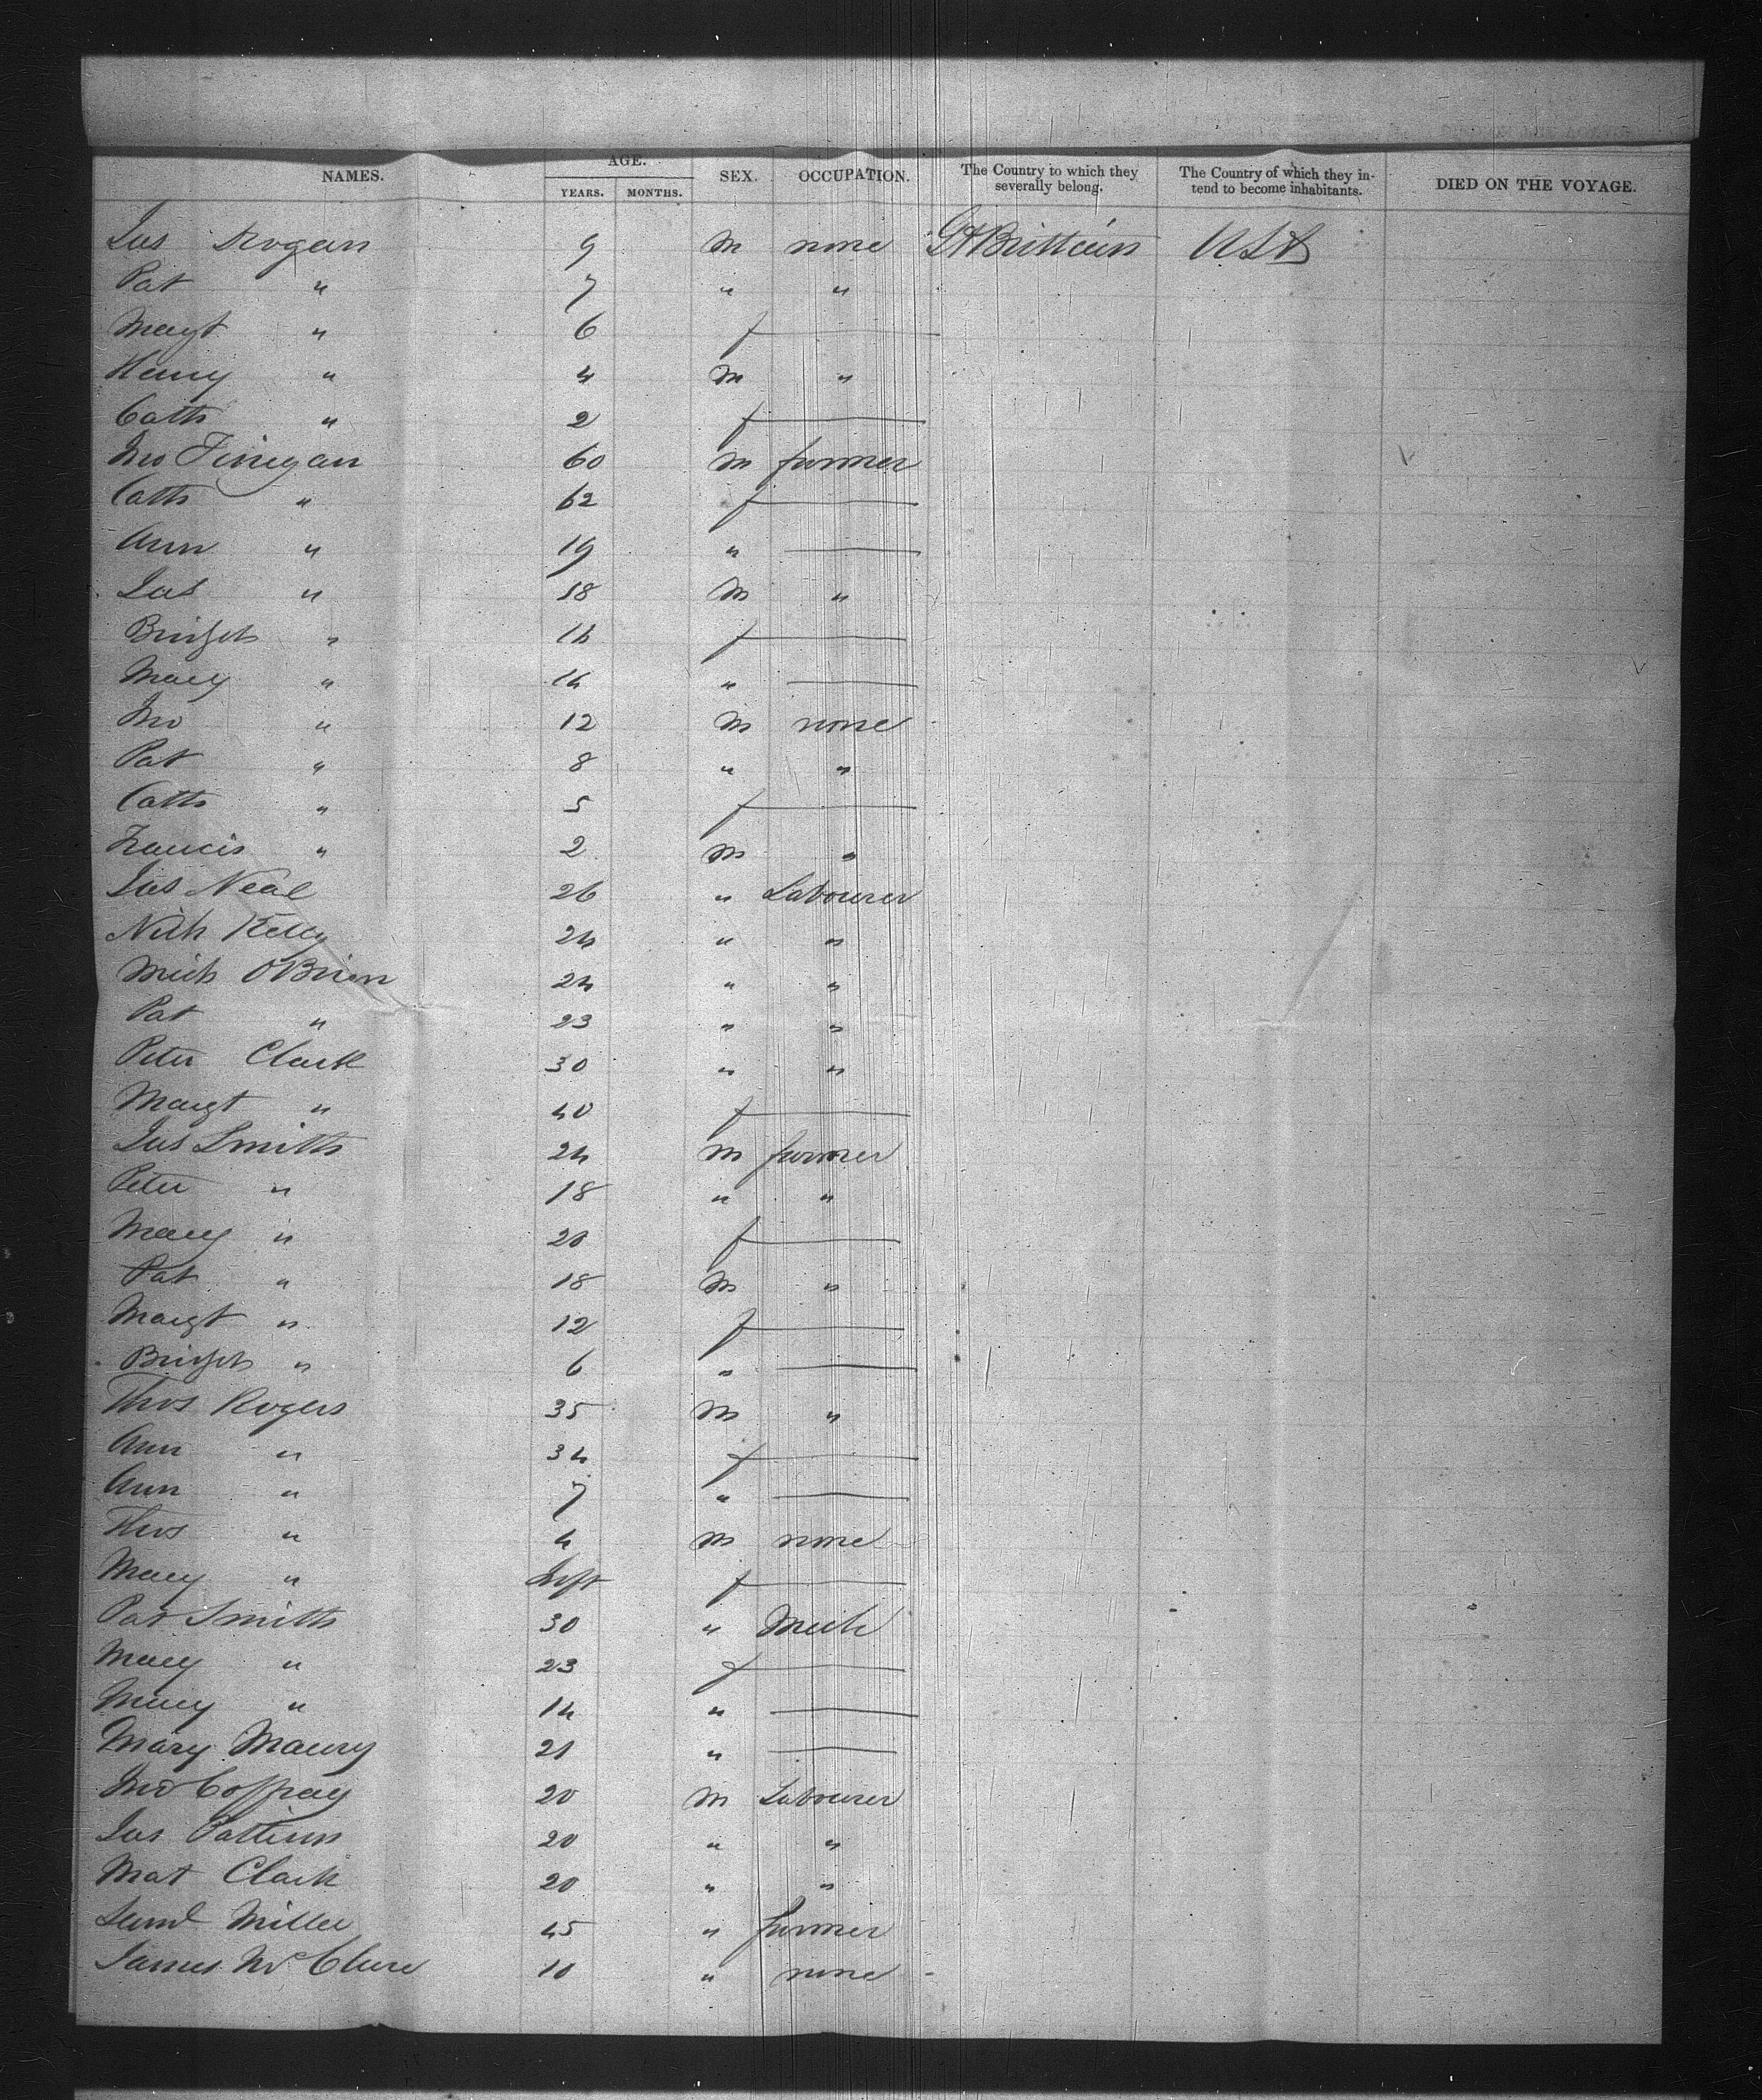 NAMES. AGE. YEARS. MONTHS. SEX. OCCUPATION. The Country to which they severally belong. The Country of which they intend to become inhabitants. DIED ON THE VOYAGE.
Jas Rogan 9 m none Gt Brittain USA
Pat " 7 " "
Magt " 6 f —
Henry " 4 m "
Cath " 2 f —
Jno Finegan 60 m farmer
Cath " 62 f —
Ann " 19 " —
Jas " 18 m "
Bridget " 16 f —
Mary " 14 " —
Jno " 12 m none
Pat " 8 " "
Cath " 5 f —
Francis " 2 m "
Jas Neal 26 " Labourer
Nich Kelly 24 " "
Mich OBrien 24 " "
Pat " 23 " "
Peter Clark 30 " "
Margt " 40 f —
Jas Smith 24 m farmer
Peter " 18 " "
Mary " 20 f —
Pat " 18 m "
Margt " 12 f —
Bridget " 6 " —
Thos Rogers 35 m "
Ann " 34 f —
Ann " 7 " —
Thos " 4 m none
Mary " Inft f —
Pat Smith 30 " Mech
Mary " 23 f —
Mary " 14 " —
Mary Maury 21 " —
Jno Coffray 20 m Labourer
Jas Pattison 20 " "
Mat Clark 20 " "
Saml Miller 45 " farmer
James McClure 10 " none